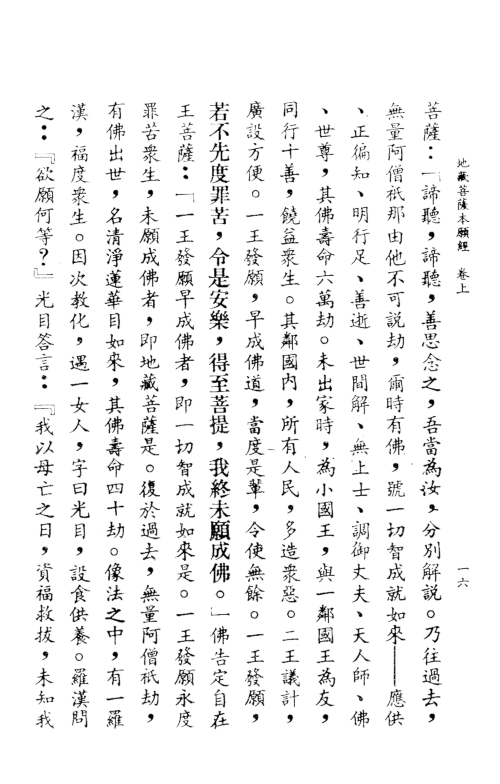 地藏菩薩本願經 卷上
一六
菩薩：「諦聽，諦聽，善思念之，吾當為汝，分別解說。乃往過去，
無量阿僧祇那由他不可說劫，爾時有佛，號一切智成就如來——應供
、正徧知、明行足、善逝、世間解、無上士、調御丈夫、天人師、佛
、世尊，其佛壽命六萬劫。未出家時，為小國王，與一鄰國王為友，
同行十善，饒益眾生。其鄰國內，所有人民，多造眾惡。二王議計，
廣設方便。一王發願，早成佛道，當度是輩，令使無餘。一王發願，
若不先度罪苦，令是安樂，得至菩提，我終未願成佛。」佛告定自在
王菩薩：「一王發願早成佛者，即一切智成就如來是。一王發願永度
罪苦眾生，未願成佛者，即地藏菩薩是。復於過去，無量阿僧祇劫，
有佛出世，名清淨蓮華目如來，其佛壽命四十劫。像法之中，有一羅
漢，福度眾生。因次教化，遇一女人，字曰光目，設食供養。羅漢問
之：『欲願何等？』光目答言：『我以母亡之日，資福救拔，未知我